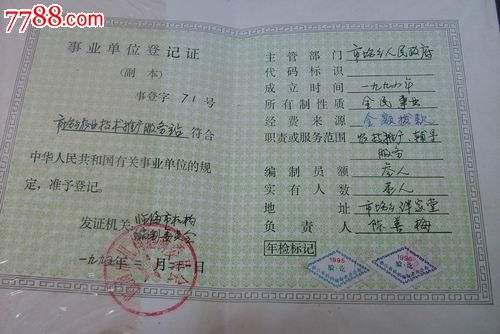 7788.com
事业单位登记证
(副本)
事登字 71 号
市场农业技术推广服务站 符合
中华人民共和国有关事业单位的规
定，准予登记。
发证机关 临海市机构
编制委员会
一九九五年 二 月 二十一 日
主管部门 市场乡人民政府
代码标识
成立时间 一九九〇年
所有制性质 全民事业
经费来源 全额拨款
职责或服务范围 农技推广、辅导
服务
编制员额 叁人
实有人数 叁人
地址 市场乡
负责人 陈善梅
年检标记
1995
验讫
1996
验讫